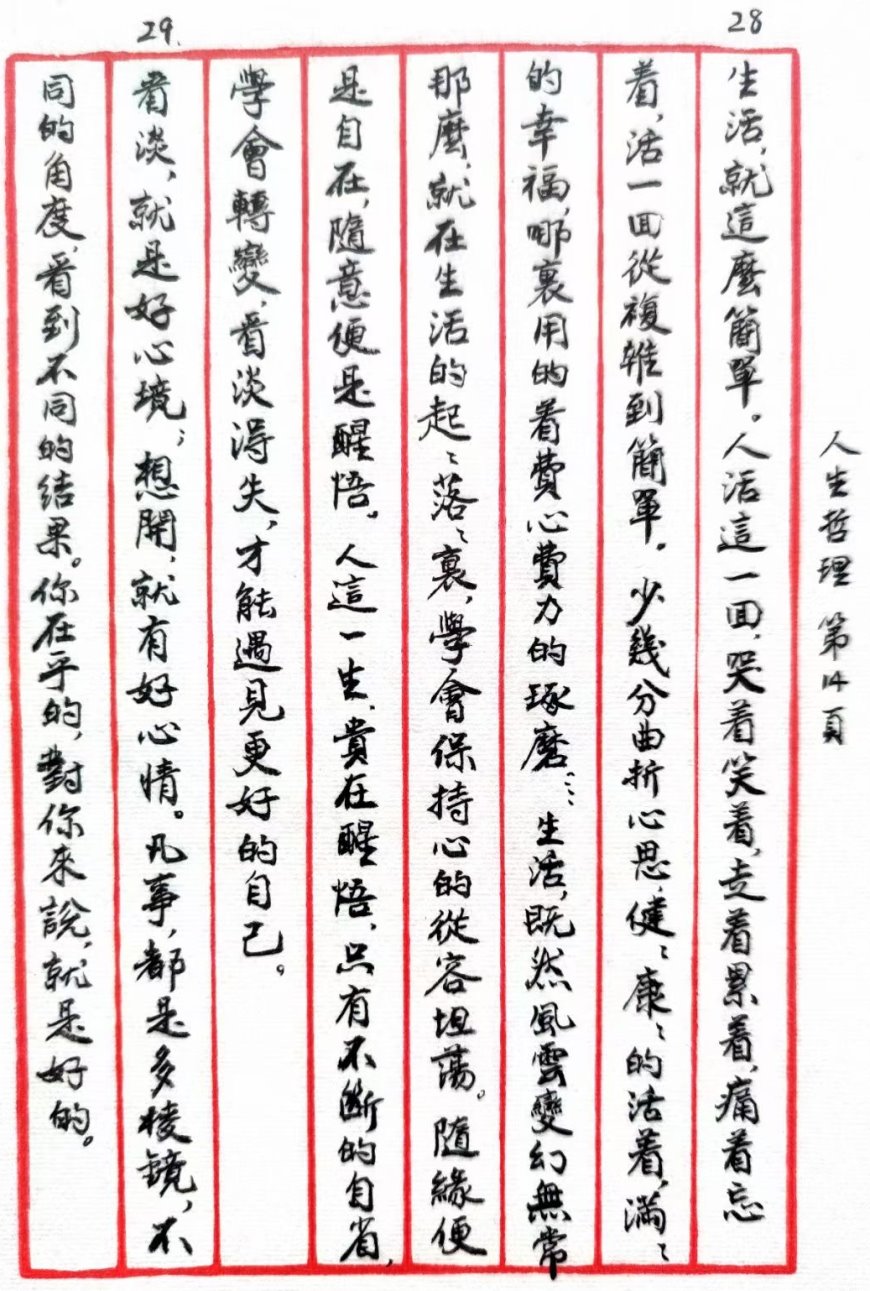 人生哲理 第14頁
28
生活,就這麼簡單。人活這一回,哭着笑着,走着累着,痛着忘
着,活一回從複雜到簡單。少幾分曲折心思,健、康、的活着,滿、
的幸福,哪裏用的着費心費力的琢磨…生活,既然風雲變幻無常
那麼,就在生活的起、落、裏,學會保持心的從容坦蕩。隨緣便
是自在,隨意便是醒悟。人這一生,貴在醒悟,只有不斷的自省,
學會轉變,看淡得失,才能遇見更好的自己。
29.
看淡,就是好心境;想開,就有好心情。凡事,都是多棱鏡,不
同的角度,看到不同的结果。你在乎的,對你來說,就是好的。